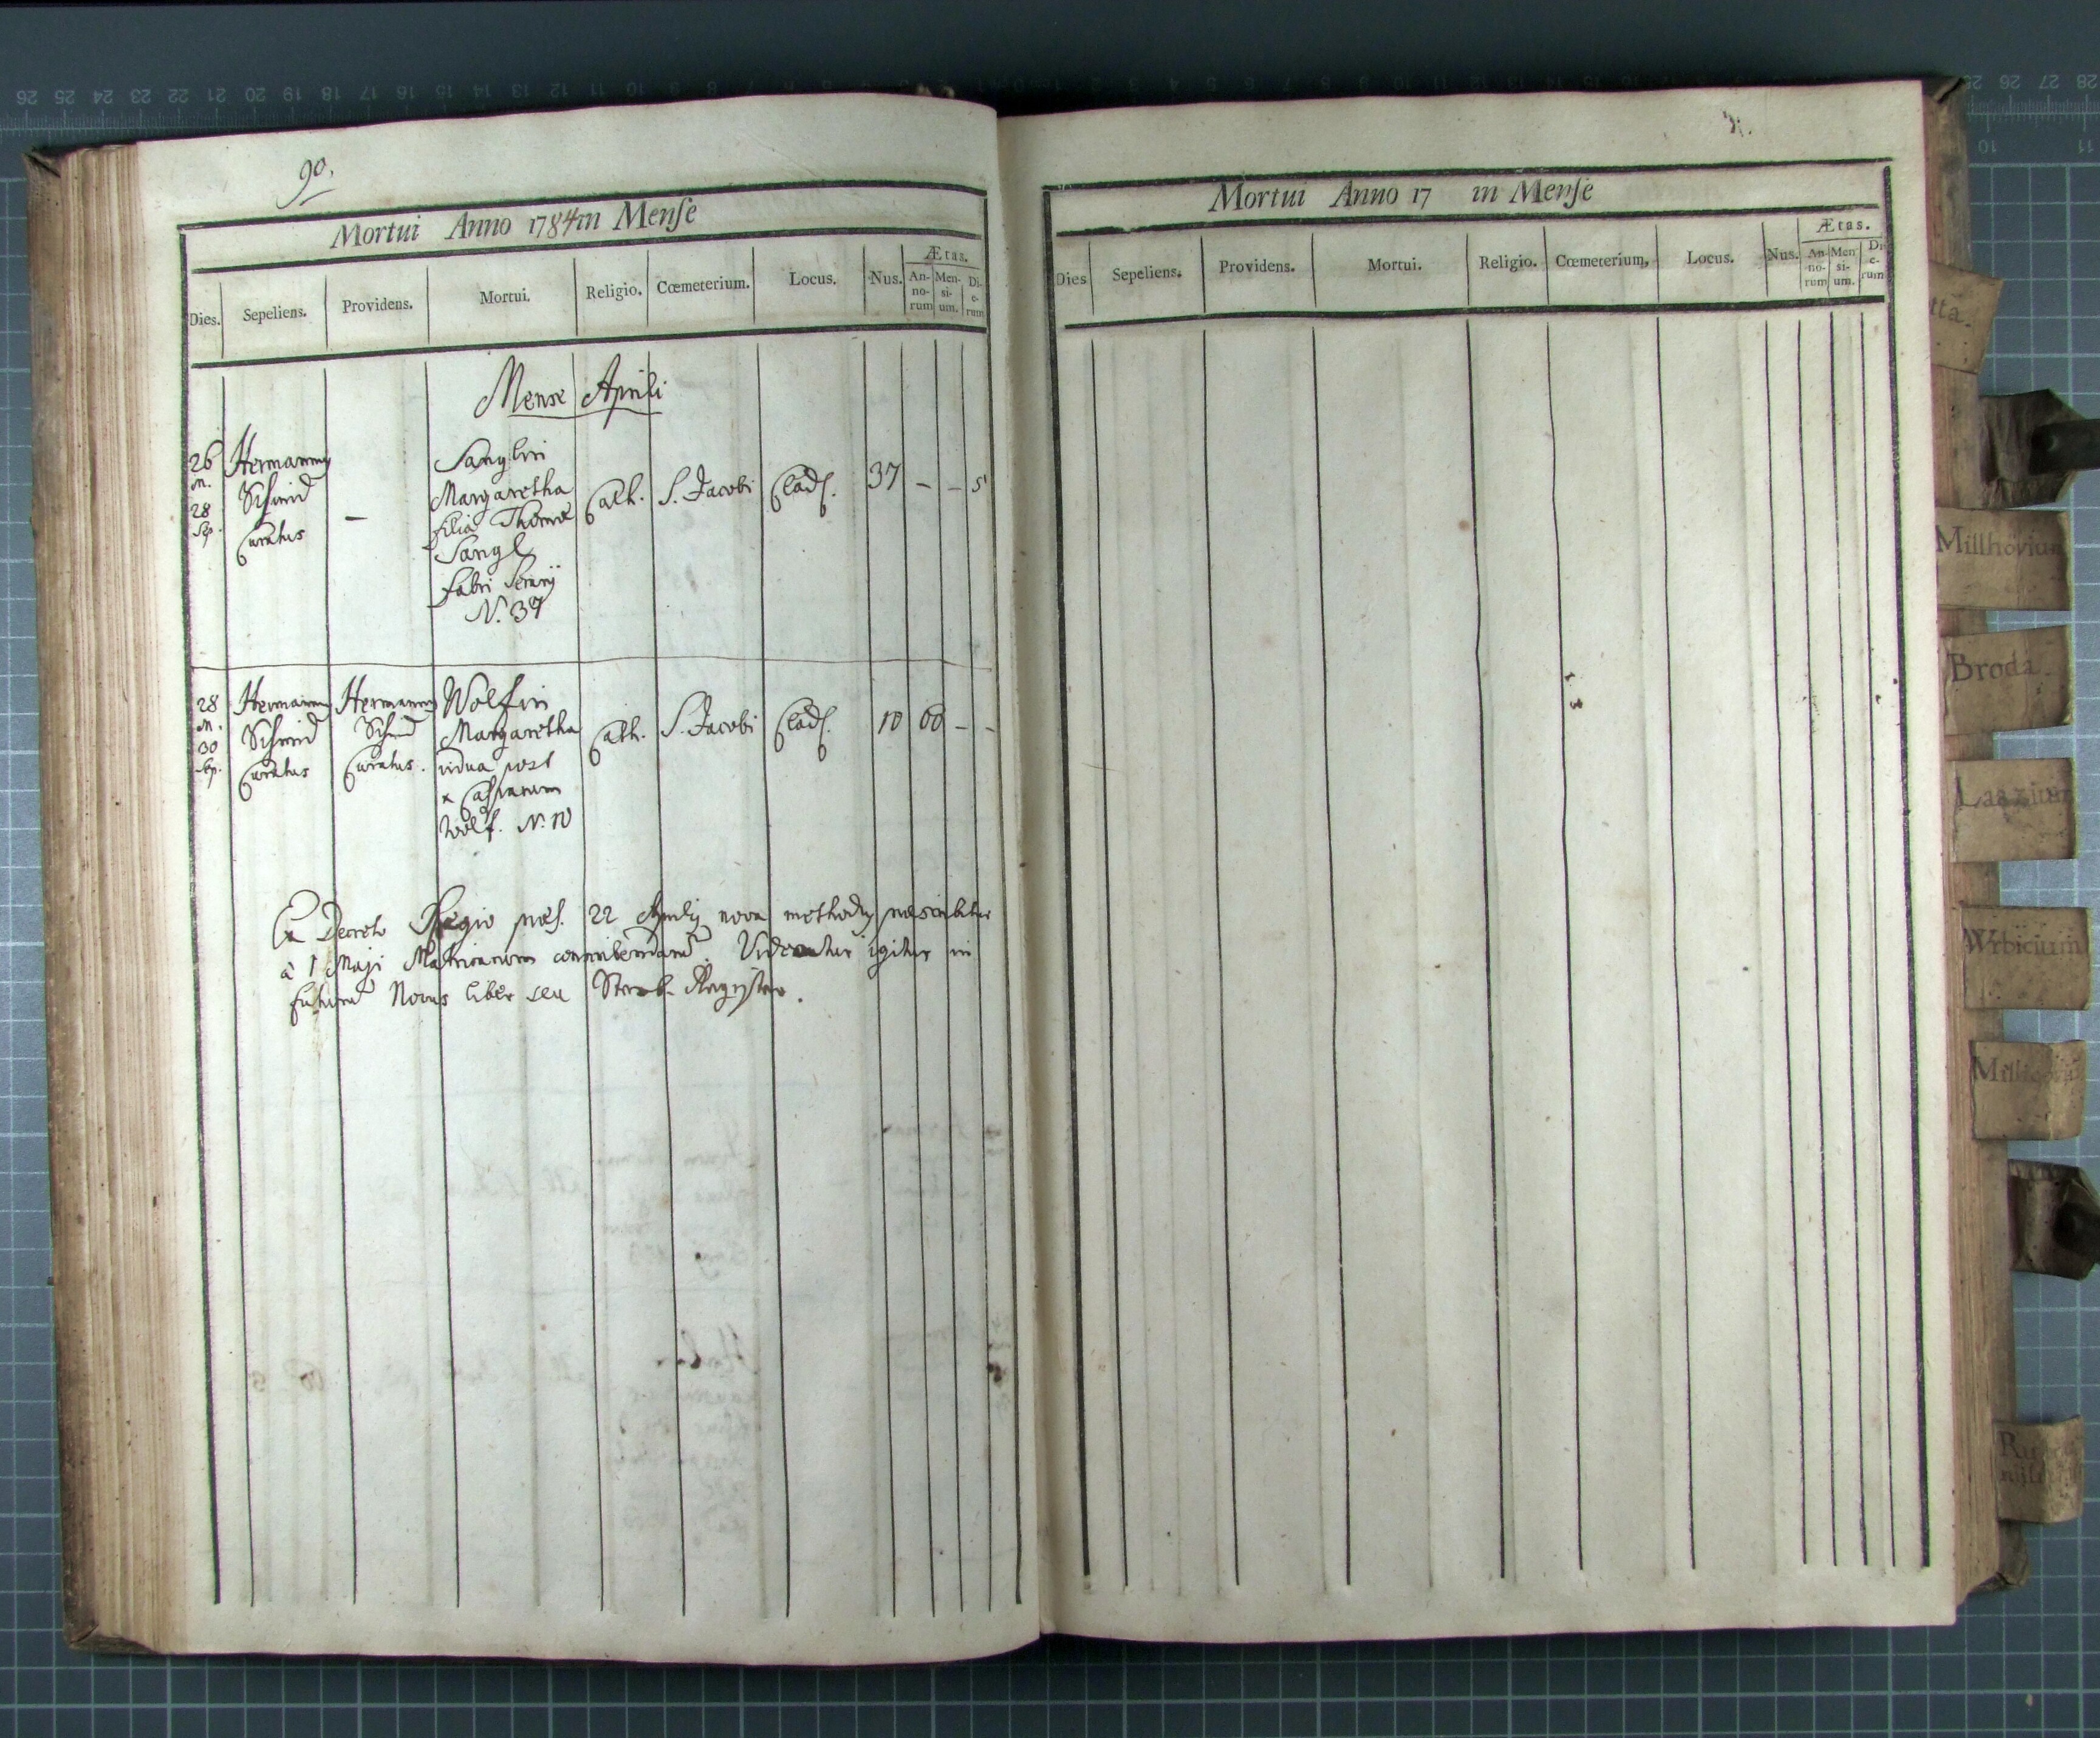 90.
Mortui Anno 1784 in Menſe
Dies. Sepeliens. Providens. Mortui. Religio. Cœmeterium. Locus. Nus. Ætas. An-no-rum Men-si-um. Di-e-rum
Mense Aprili
26 m. 28 Sep.
Hermannus
Schmid
Curatus
–
Sanglin
Margaretha
filia Thomæ
Sangl
fabri
N. 37
Cath.
S. Jacobi
Clad.
37 – – 5
28 m. 30 Sep.
Hermannus
Schmid
Curatus
Hermannus
Schmid
Curatus.
Wolfin
Margaretha
vidua post
Casparum
Wolf. N. 10
Cath.
S. Jacobi
Clad.
10 60 – –
Ex Decreto Regio 22 Aprilis nova methodus præscribitur
à 1 Maji Matricarum. Videatur igitur in
futurum Novus liber seu Sterb-Register.
Mortui Anno 17 in Menſe
Dies Sepeliens. Providens. Mortui. Religio. Cœmeterium. Locus. Nus. Ætas. An-no-rum Men-si-um. Di-e-rum
tta.
Millhövium
Broda
Laazium
Wrbicium